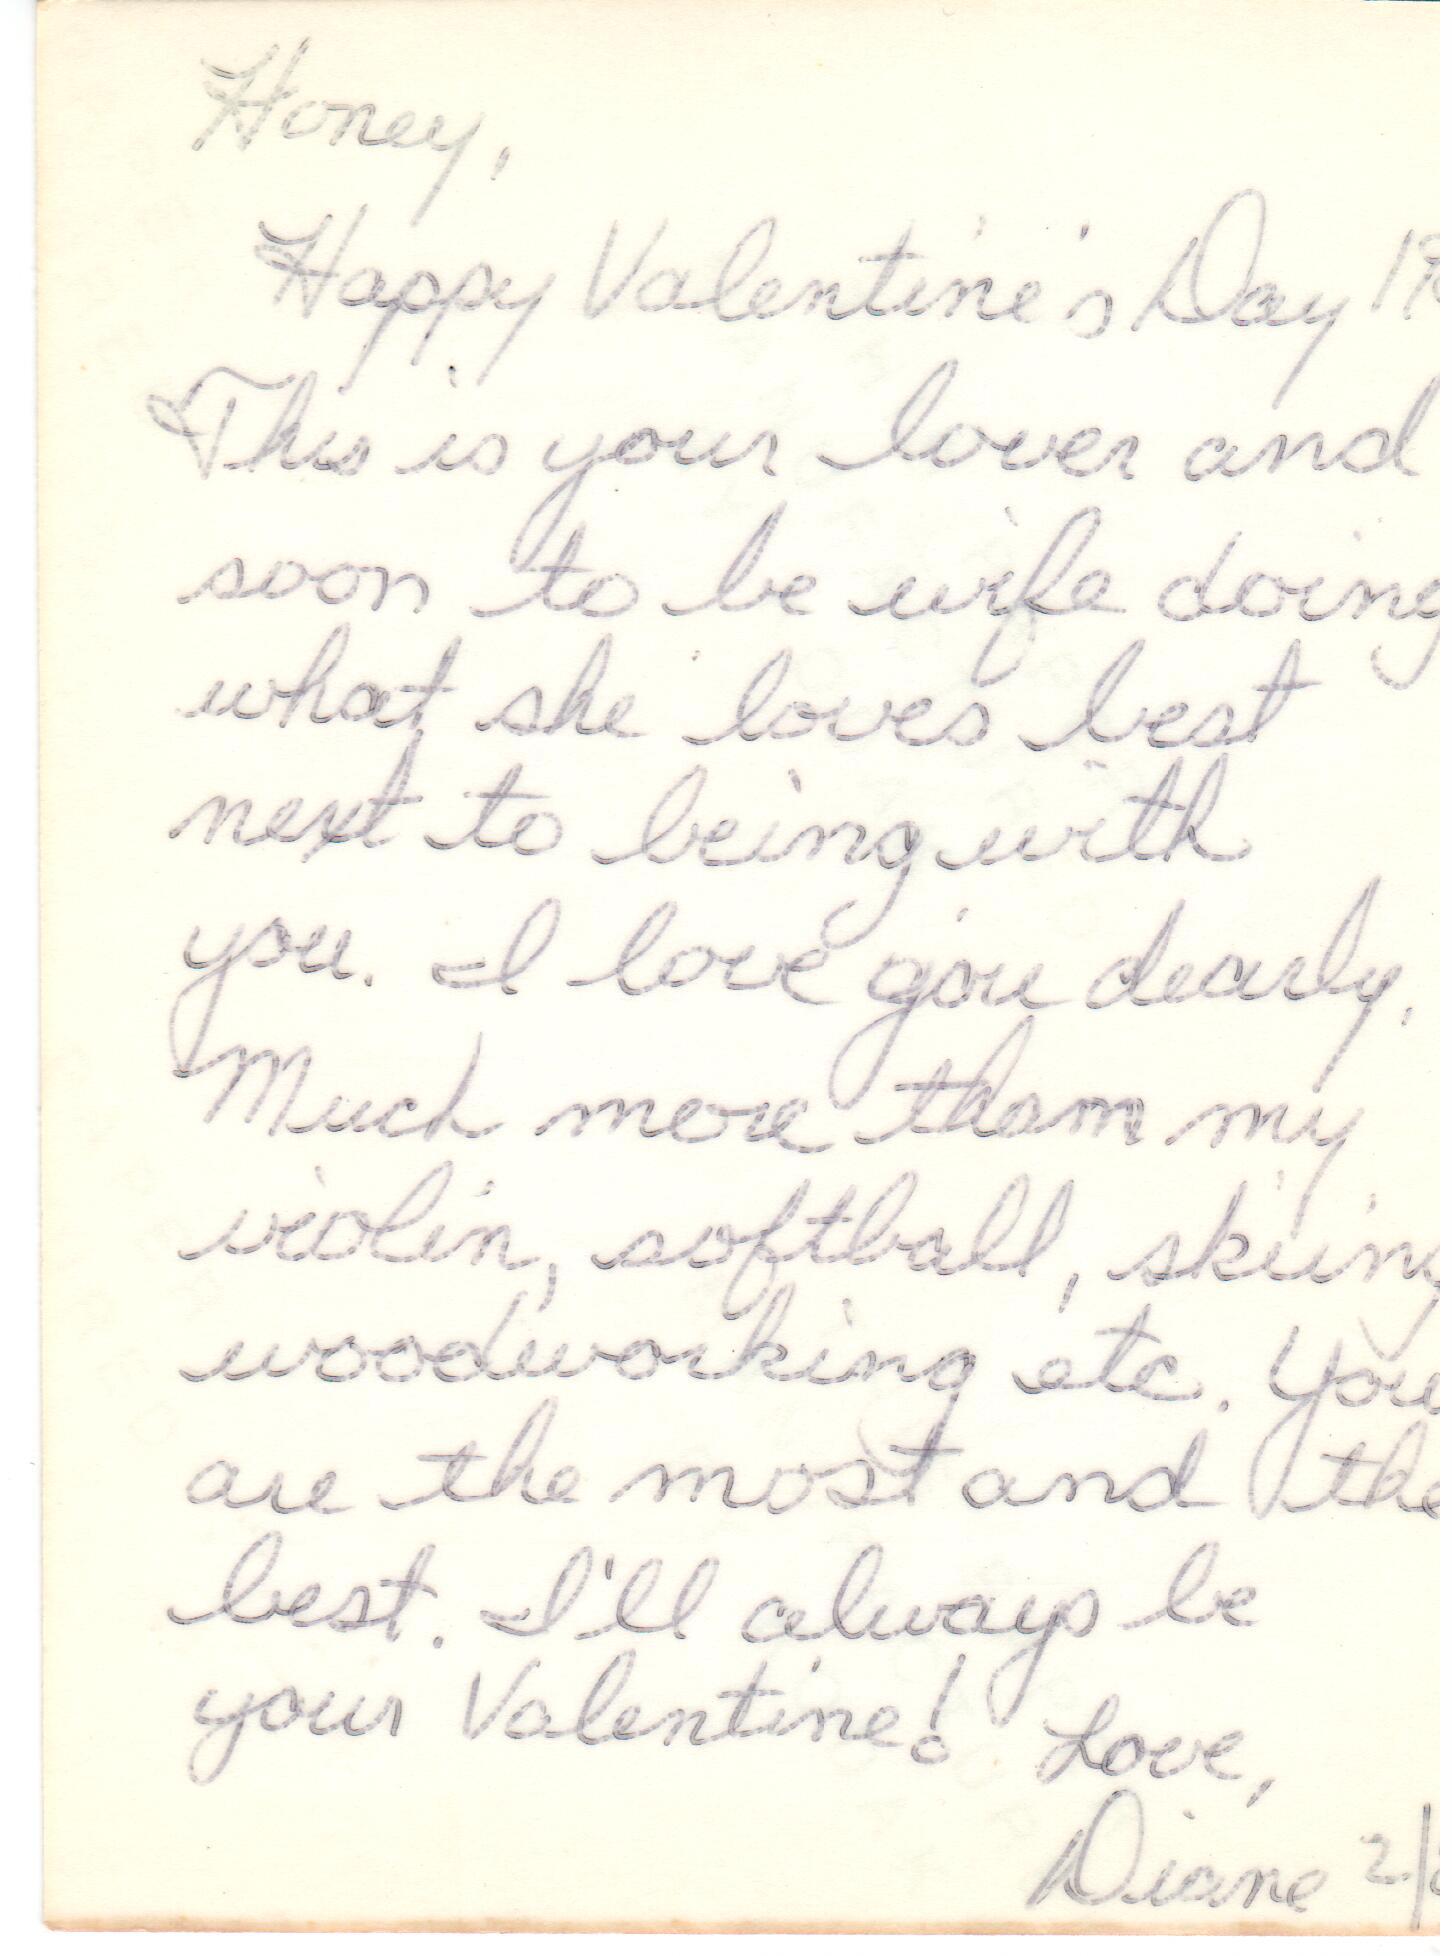 Honey,
Happy Valentine's Day 19
This is your lover and
soon to be wife doing
what she loves best
next to being with
you. I love you dearly.
Much more than my
violin, softball, skiing
woodworking etc. You
are the most and the
best. I'll always be
your Valentine! Love,
Diane 2/